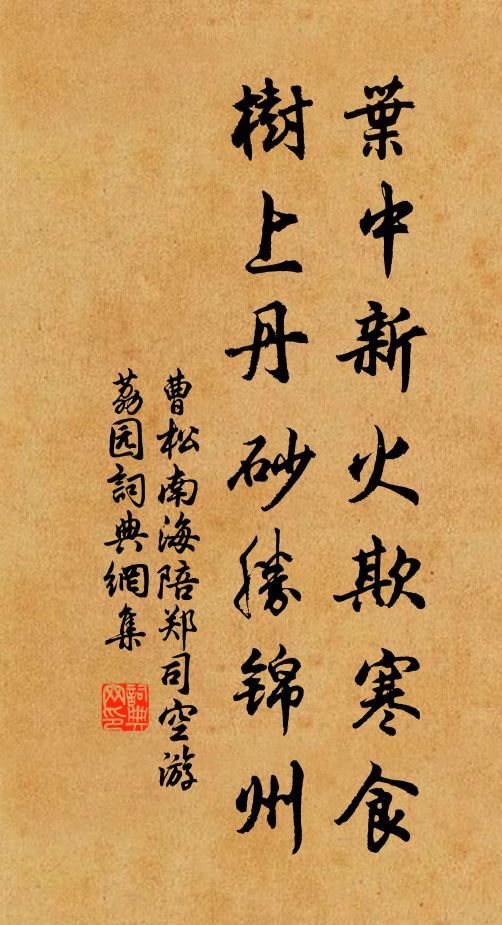 葉中新火欺寒食
樹上丹砂勝錦州
曹松南海陪郑司空游
荔园詞典網集
詞典
网印